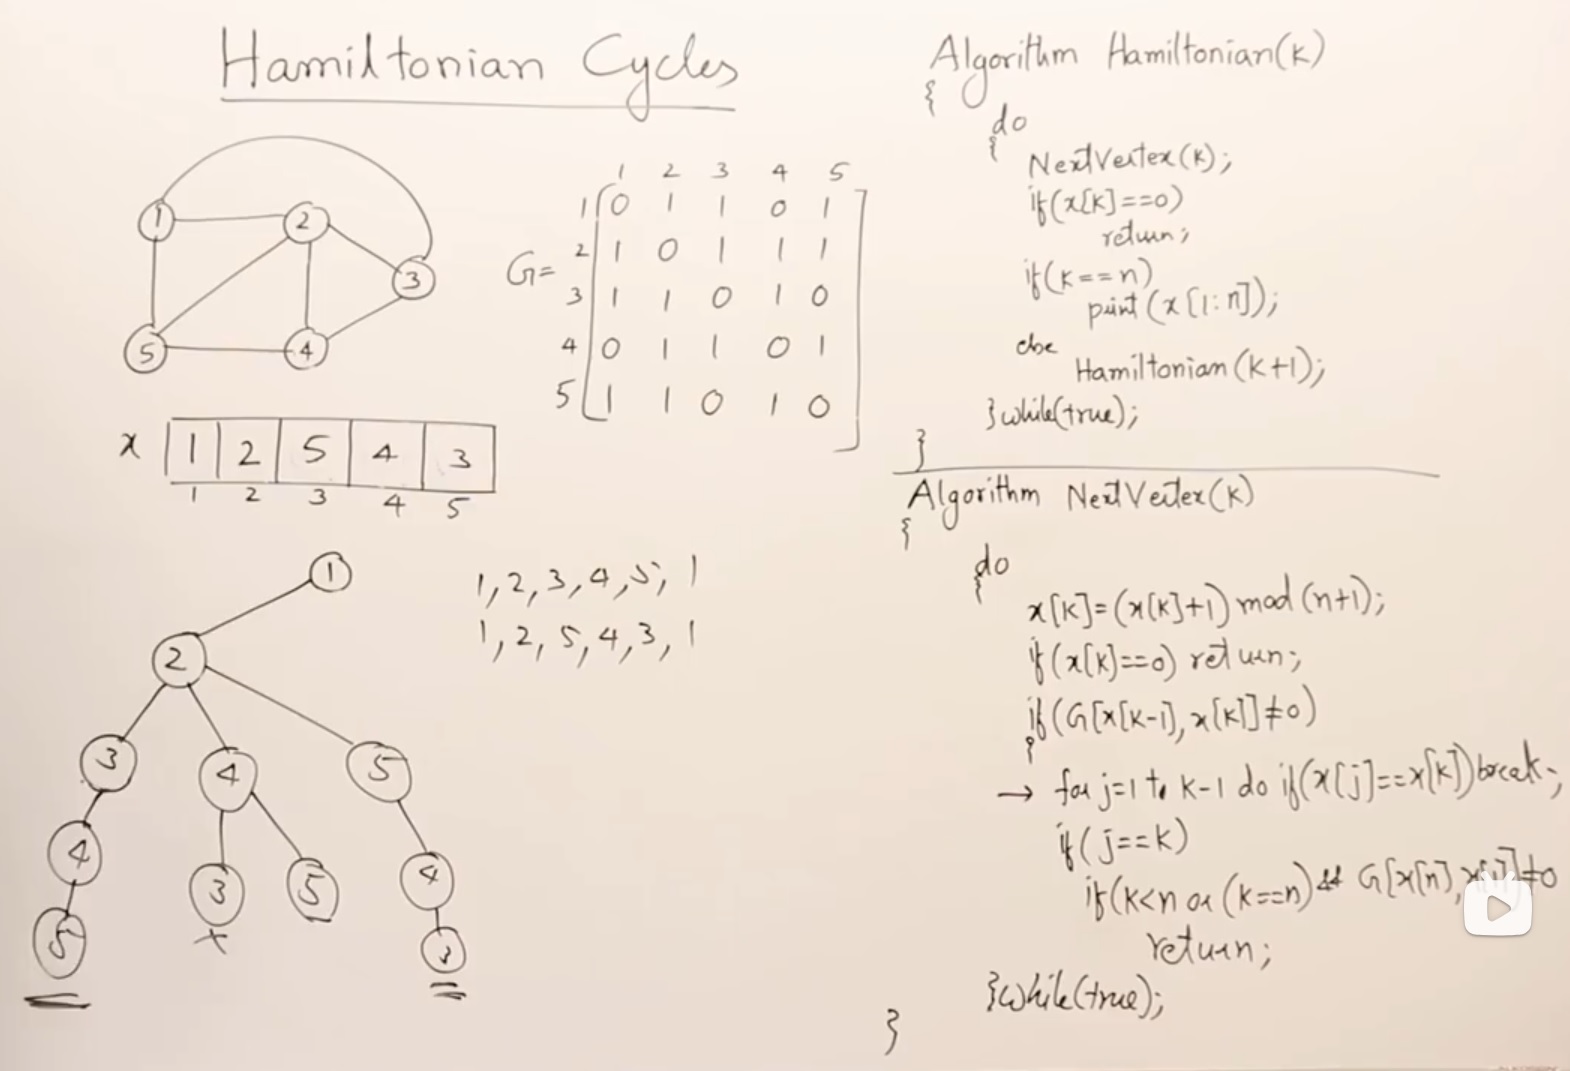 Hamiltonian Cycles
1
2
3
5
4
1 2 3 4 5
G=
1 0 1 1 0 1
2 1 0 1 1 1
3 1 1 0 1 0
4 0 1 1 0 1
5 1 1 0 1 0
x 1 2 5 4 3
1 2 3 4 5
1
2
3 4 5
4 3 5 4
5 x 3
1, 2, 3, 4, 5, 1
1, 2, 5, 4, 3, 1
Algorithm Hamiltonian(k)
{
do
{
NextVertex(k);
if(x[k]==0)
return;
if(k==n)
print(x[1:n]);
else
Hamiltonian(k+1);
}while(true);
}
Algorithm NextVertex(k)
{
do
{
x[k]=(x[k]+1) mod (n+1);
if(x[k]==0) return;
if(G[x[k-1], x[k]]≠0)
{
→ for j=1 to k-1 do if(x[j]==x[k]) break;
if(j==k)
if(k<n or (k==n) && G[x[n], x[1]]≠0
return;
}while(true);
}